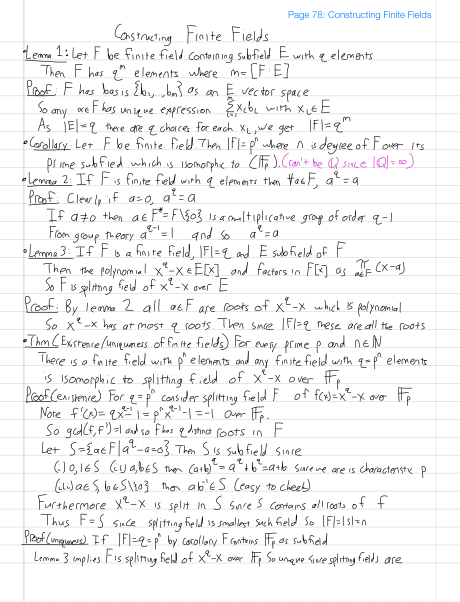 Page 78: Constructing Finite Fields
Constructing Finite Fields
• Lemma 1: Let F be finite field containing subfield E with q elements
Then F has q^m elements where m = [F:E]
Proof: F has basis {b₁,...,bₘ} as an E vector space
So any α∈F has unique expression Σ xᵢbᵢ with xᵢ∈E
As |E|=q there are q choices for each xᵢ, we get |F|=q^m
• Corollary: Let F be finite field. Then |F|=p^n where n is degree of F over its
prime subfield which is isomorphic to (𝔽ₚ). (can't be ℚ since |ℚ|=∞)
• Lemma 2: If F is finite field with q elements then ∀a∈F, a^q=a
Proof: Clearly if a=0, a^q=a
If a≠0 then a∈F*=F\{0} is a multiplicative group of order q-1
From group theory a^(q-1)=1 and so a^q=a
• Lemma 3: If F is a finite field, |F|=q and E subfield of F
Then the polynomial x^q-x∈E[x] and factors in F[x] as ∏_{a∈F} (x-a)
So F is splitting field of x^q-x over E
Proof: By lemma 2 all a∈F are roots of x^q-x which is polynomial
So x^q-x has at most q roots. Then since |F|=q these are all the roots
• Thm (Existence/uniqueness of finite fields) For every prime p and n∈ℕ
There is a finite field with p^n elements and any finite field with q=p^n elements
is isomorphic to splitting field of x^q-x over 𝔽ₚ
Proof (existence) For q=p^n consider splitting field F of f(x)=x^q-x over 𝔽ₚ
Note f'(x)=qx^(q-1)-1=p^n x^(q-1)-1=-1 over 𝔽ₚ.
So gcd(f,f')=1 and so f has q distinct roots in F
Let S={a∈F|a^q-a=0}. Then S is subfield since
(i) 0,1∈S (ii) a,b∈S then (a+b)^q=a^q+b^q=a+b since we are in characteristic p
(iii) a∈S, b∈S\{0} then ab⁻¹∈S (easy to check)
Furthermore x^q-x is split in S since S contains all roots of f
Thus F=S since splitting field is smallest such field so |F|=|S|=n
Proof (uniqueness) If |F|=q=p^n by corollary F contains 𝔽ₚ as subfield
Lemma 3 implies F is splitting field of x^q-x over 𝔽ₚ So unique since splitting fields are